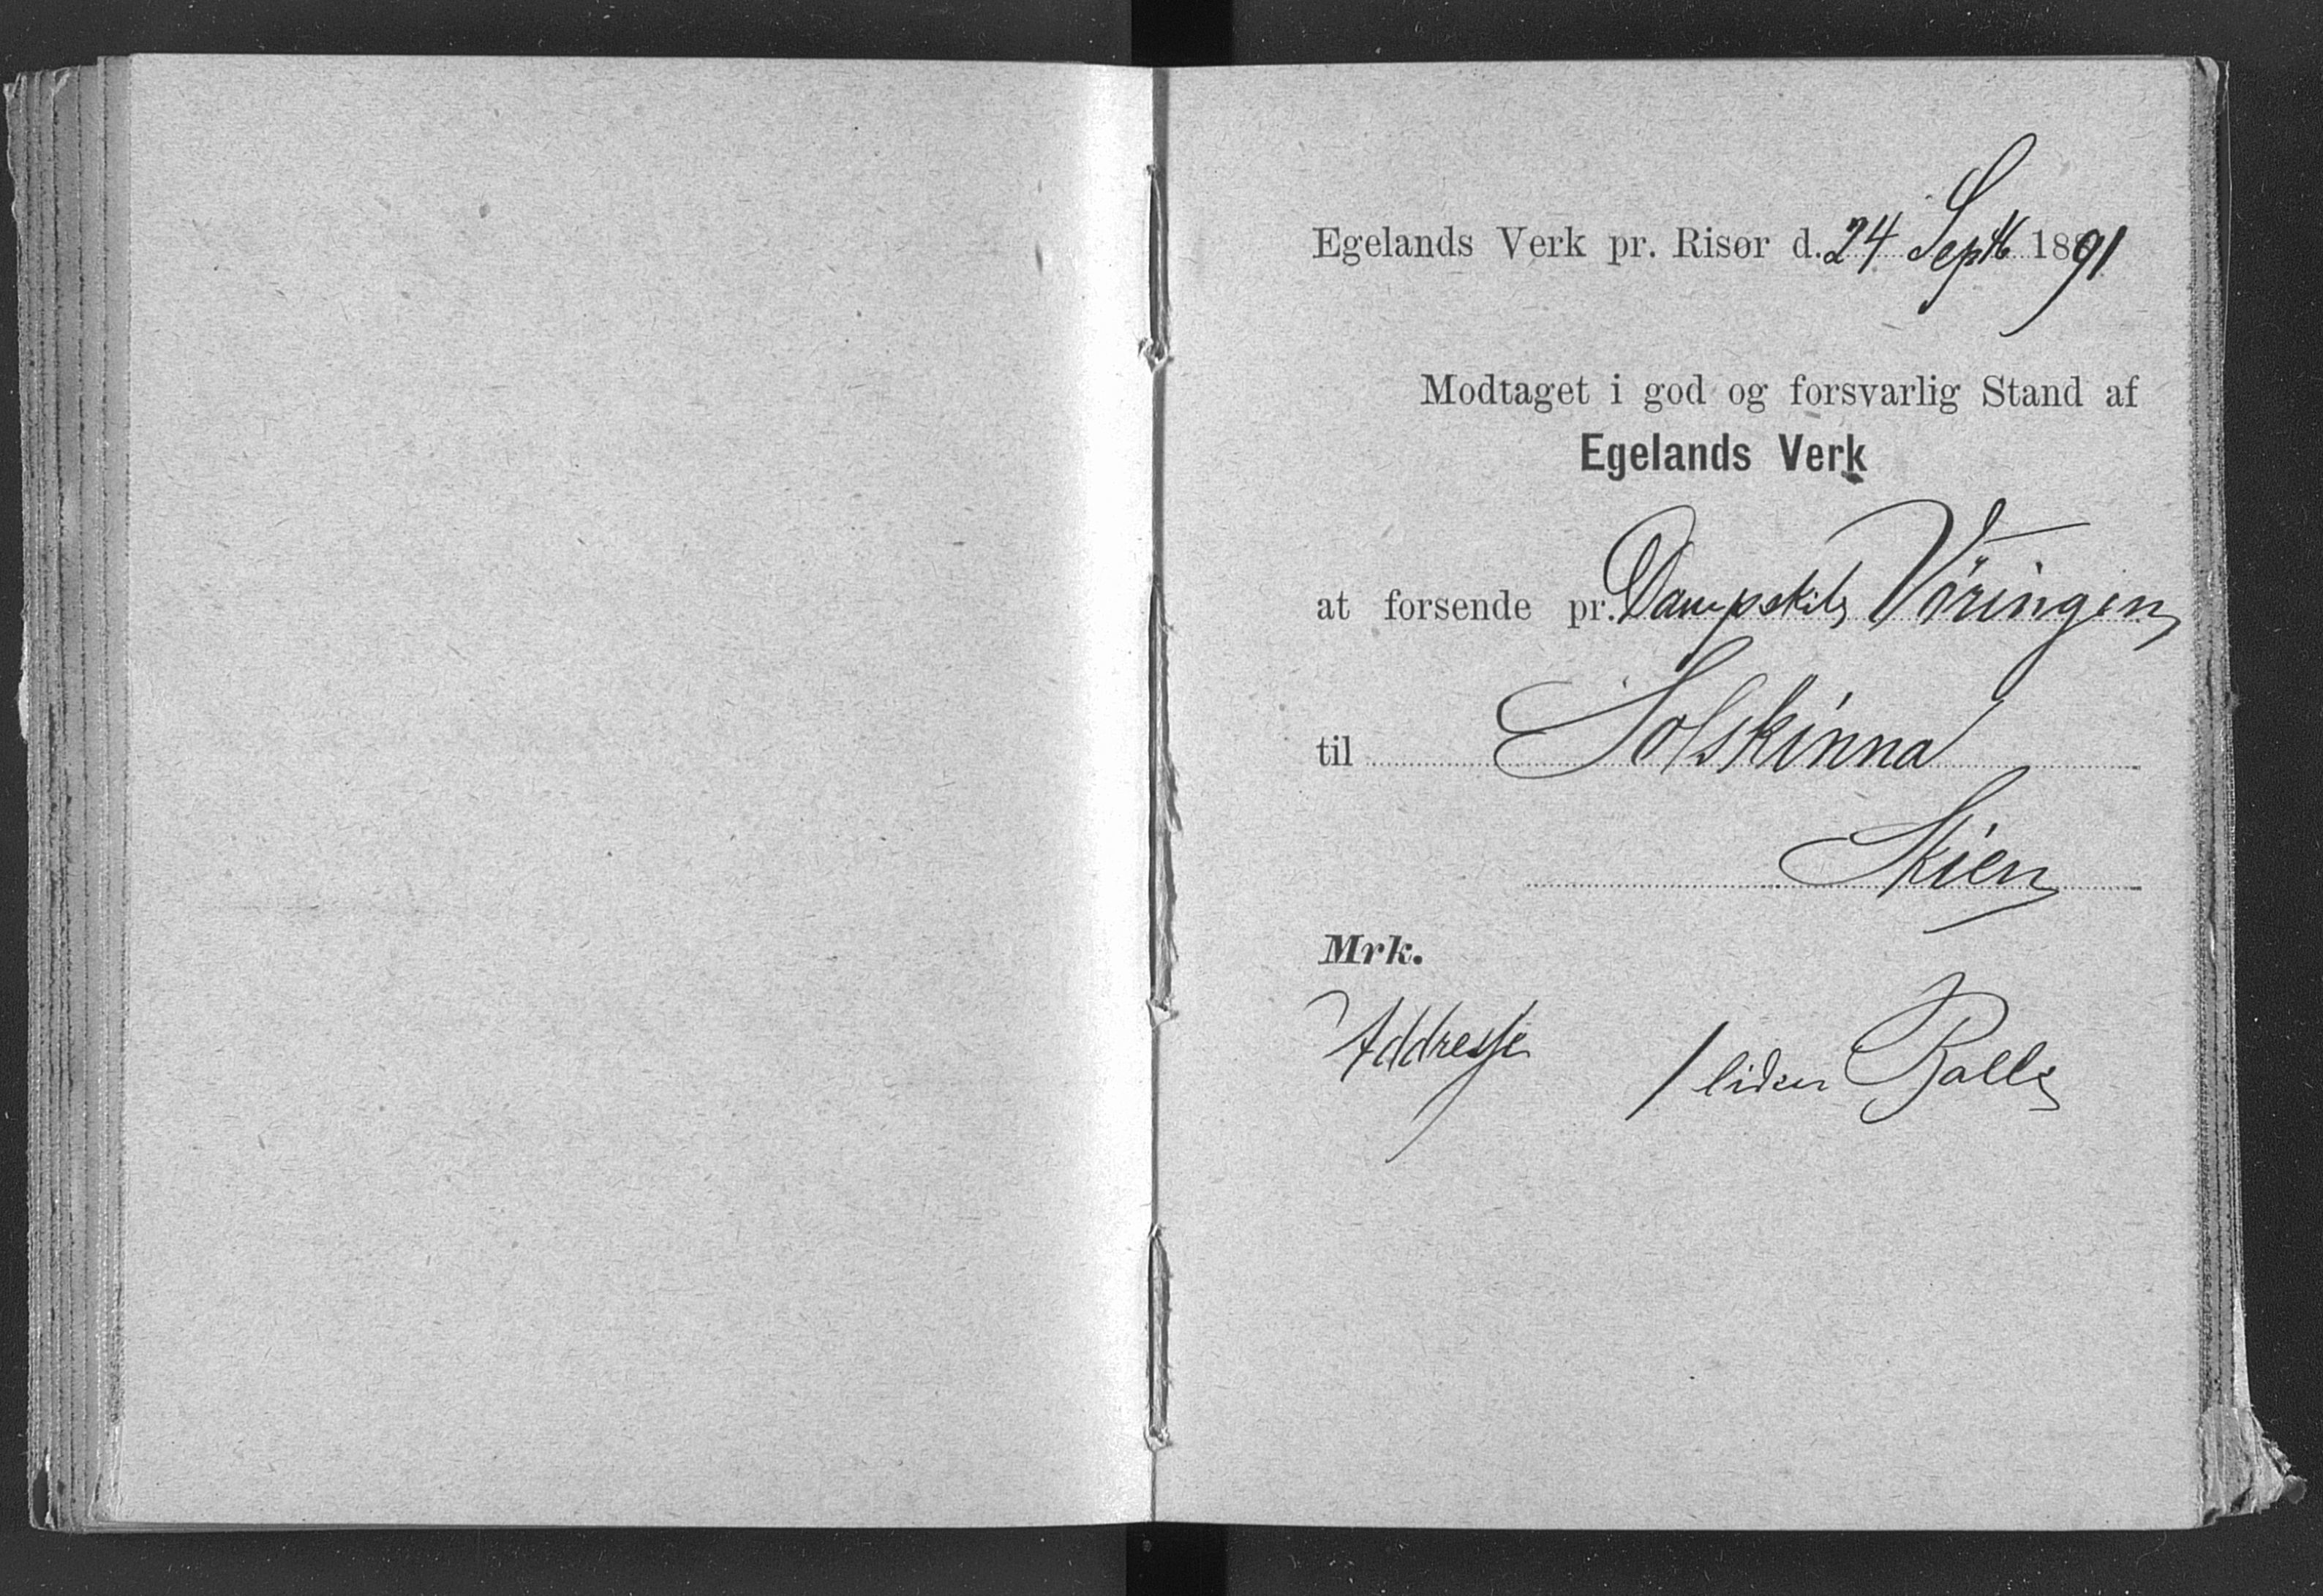 Egelands Verk pr. Risør d. 24 Septb 1891
Modtaget i god og forsvarlig Stand af
Egelands Verk
at forsende pr. Dampskib Vöringen
til Solskinna
Skien
Mrk.
Addresse 1 liden Balle